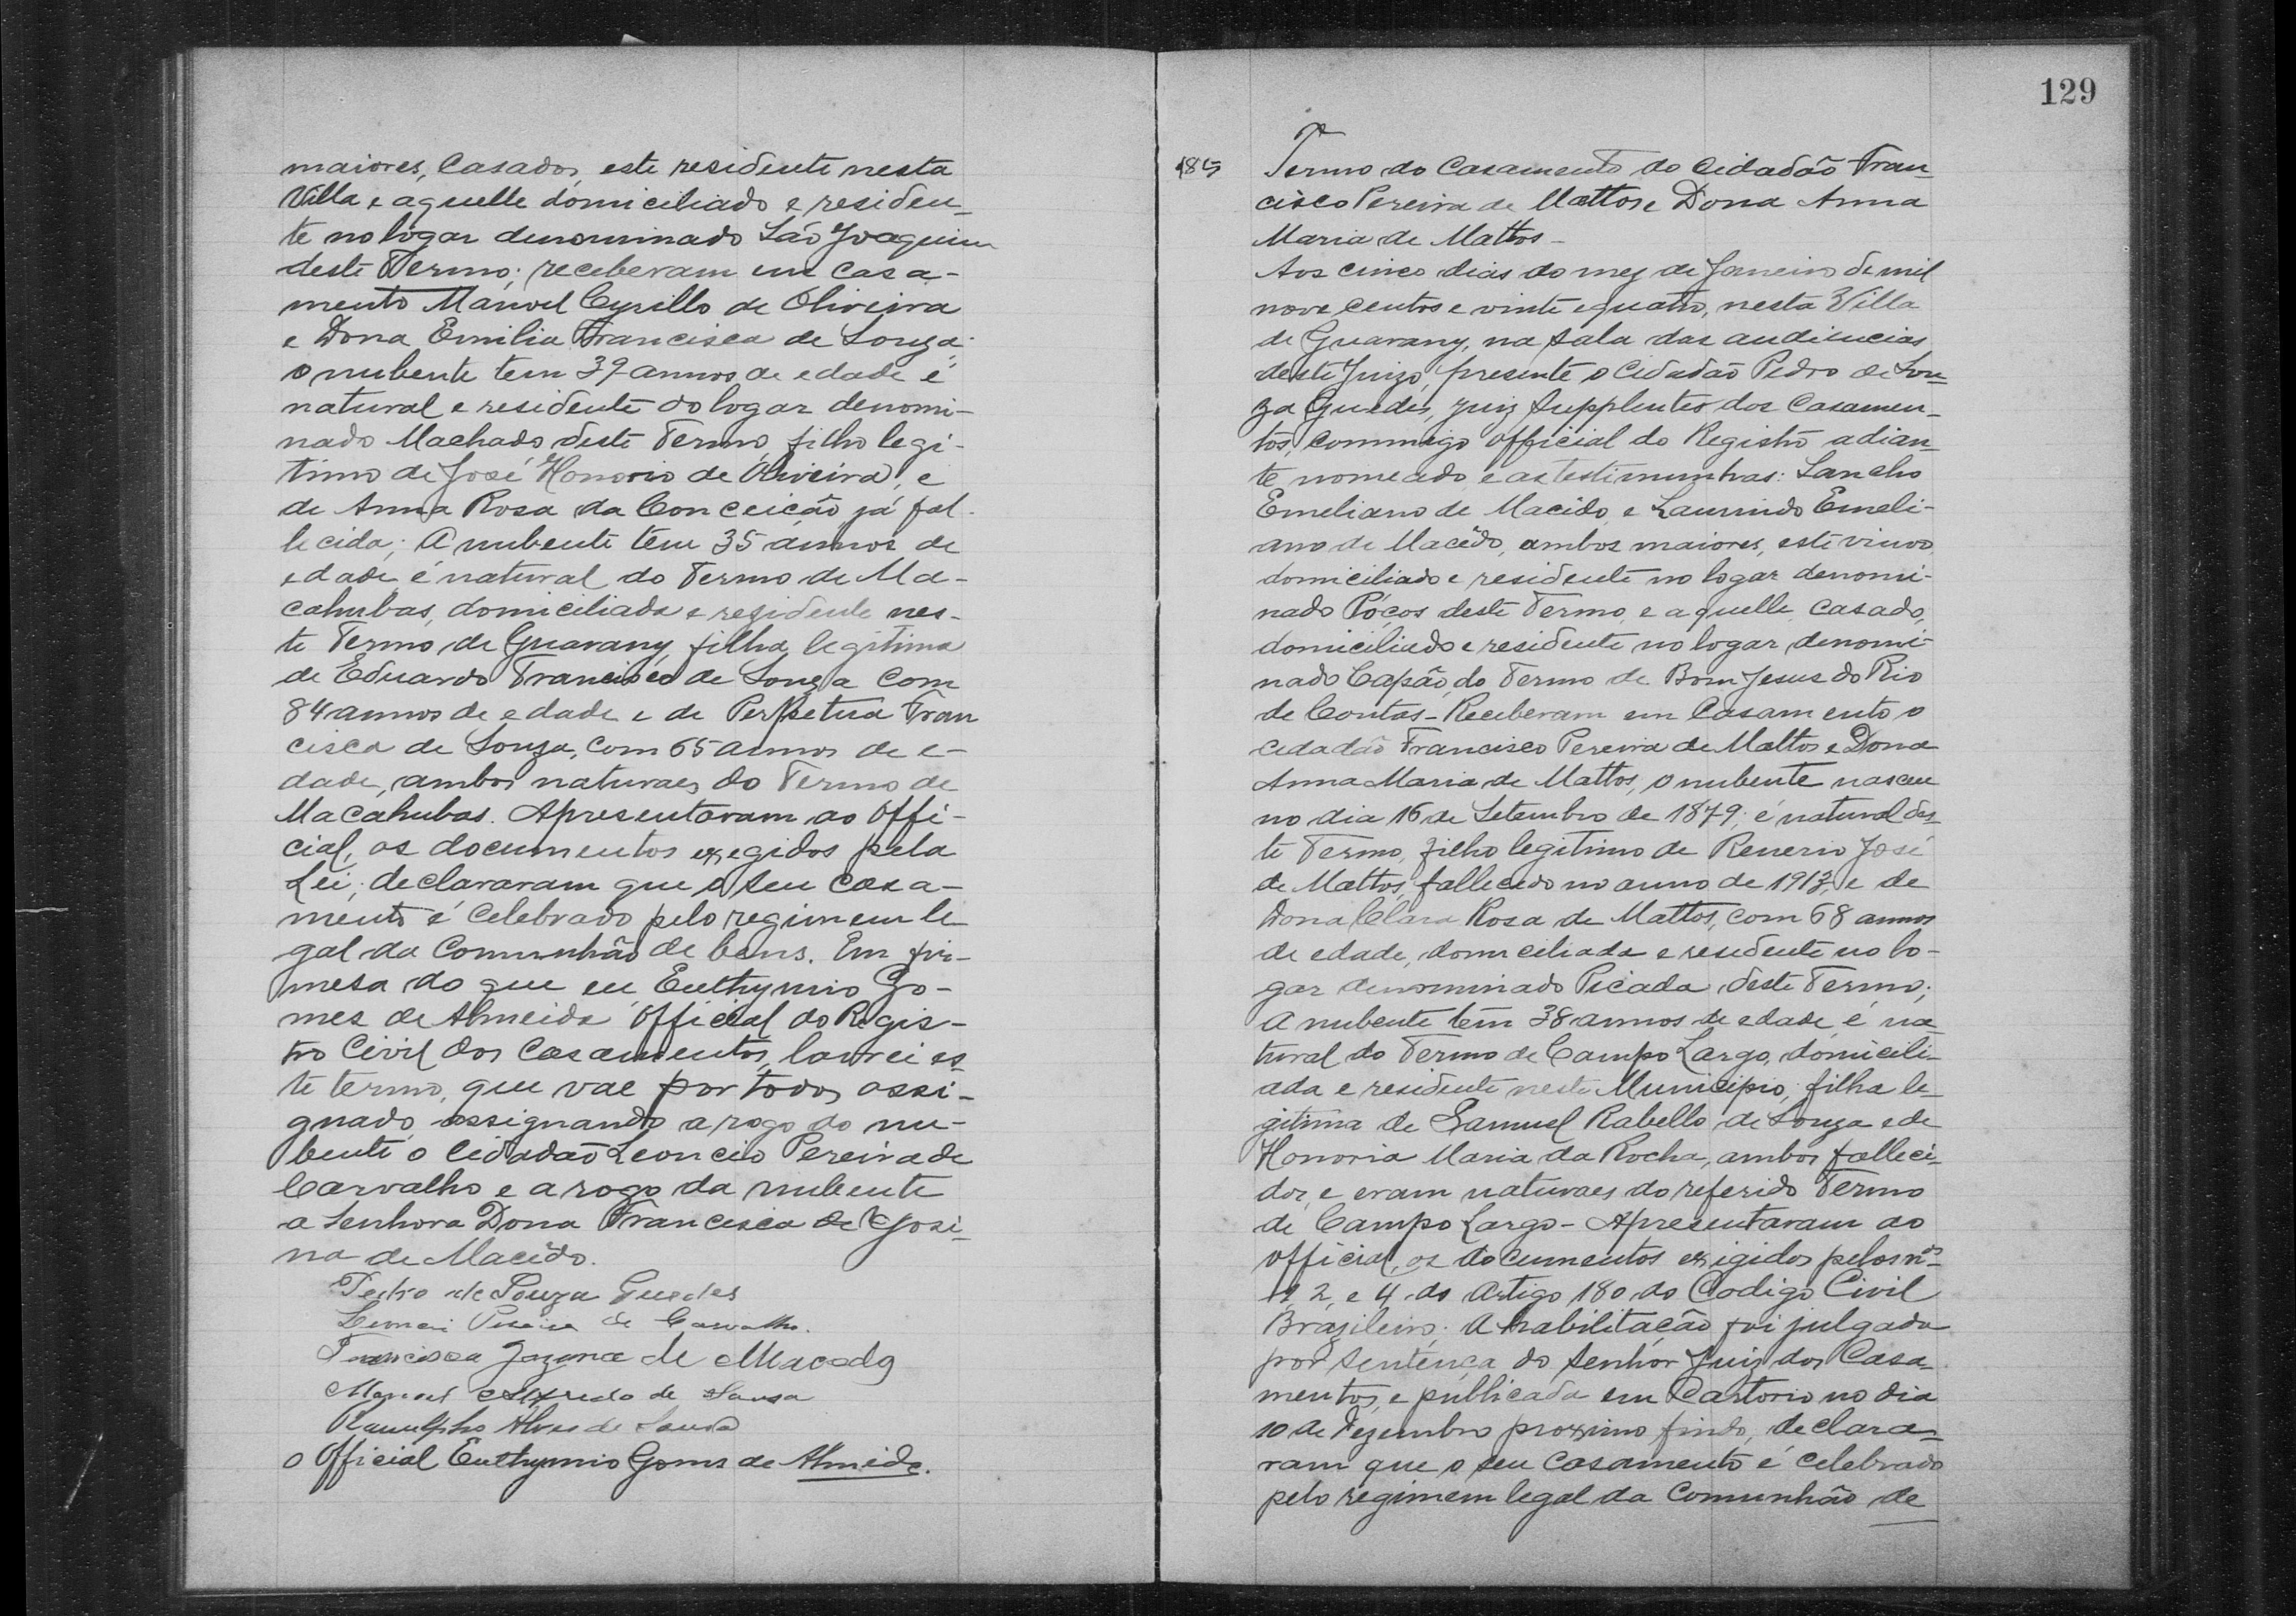 maiores, Casados, este residente nesta
Villa e aquelle domiciliado e residen-
te no logar denominado São Joaquim
deste Termo; receberam em casa-
mento Manoel Cyrillo de Oliveira
e Dona Emilia Francisca de Souza;
o nubente tem 39 annos de edade é
natural e residente do logar denomi-
nado Machado deste Termo, filho legi-
timo de José Honorio de Oliveira, e
de Anna Rosa da Conceição já fal-
lecida; A nubente tem 35 annos de
edade é natural do Termo de Ma-
cahubas, domiciliada e residente nes-
te Termo de Guarany, filha legitima
de Eduardo Francisco de Souza com
84 annos de edade e de Perpetua Fran
cisca de Souza, com 65 annos de e-
dade, ambos naturaes do Termo de
Macahubas. Apresentaram ao Offi-
cial, os documentos exegidos pela
Lei; declararam que o seu casa-
mento é celebrado pelo regimem le
gal da Comunhão de bens. Em fir-
mesa do que eu Euthymio Go-
mes de Almeida Official do Regis-
tro Civil dos Casamentos, lavrei es-
te termo, que vae por todos assi-
gnado, assignando a rogo do nu-
bente o Cidadão Leoncio Pereira de
Carvalho e a rogo da nubente
a Senhora Dona Francisca de Josi-
na de Macêdo.
Pedro de Souza Guedes
Pereira de Carvalho.
Francisca Jozina de Macedo
Manoel Alfredo de Sousa
Ranulpho Alves de Souza
O Official Euthymio Gomes de Almeida.
129
185
Termo do Casamento do Cidadão Fran-
cisco Pereira de Mattos e Dona Anna
Maria de Mattos -
Aos cinco dias do mez de Janeiro de mil
nove centos e vinte e quatro, nesta Villa
de Guarany, na sala das audiencias
deste Juizo, presente o Cidadão Pedro de Sou-
za Guedes, juiz Supplente dos Casamen-
tos, commigo Official do Registro adian-
te nomeado e as testimunhas: Sancho
Emeliano de Macêdo, e Laurindo Emeli-
ano de Macêdo, ambos maiores, este viuvo
domiciliado e residente no logar denomi-
nado Póços deste Termo, e aquelle, casado,
domiciliado e residente no logar denomi-
nado Capão, do Termo de Bom Jesus do Rio
de Contas - Receberam em Casamento o
cidadão Francisco Pereira de Mattos e Dona
Anna Maria de Mattos, o nubente nasceu
no dia 16 de Setembro de 1879; é natural des-
te Termo, filho legitimo de Renerio José
de Mattos, fallecido no anno de 1913 e de
Dona Clara Rosa de Mattos, com 68 annos
de edade, domiciliada e residente no lo-
gar denominado Picada, deste Termo;
A nubente tem 38 annos de edade, é na-
tural do Termo de Campo Largo, domicili-
ada e residente neste Municipio; filha le-
gitima de Samuel Rabello de Souza e de
Honoria Maria da Rocha, ambos falleci-
dos, e eram naturaes do referido Termo
de Campo Largo - Apresentaram ao
official, os documentos exigidos pelos nos
1, 2, e 4 do Artigo 180 do Codigo Civil
Brazileiro; A habilitação foi julgada
por sentença do Senhor Juiz dos Casa-
mentos, e publicada em Cartorio no dia
10 de Dezembro proximo findo, declara-
ram que o seu casamento é celebrado
pelo regimem legal da Comunhão de